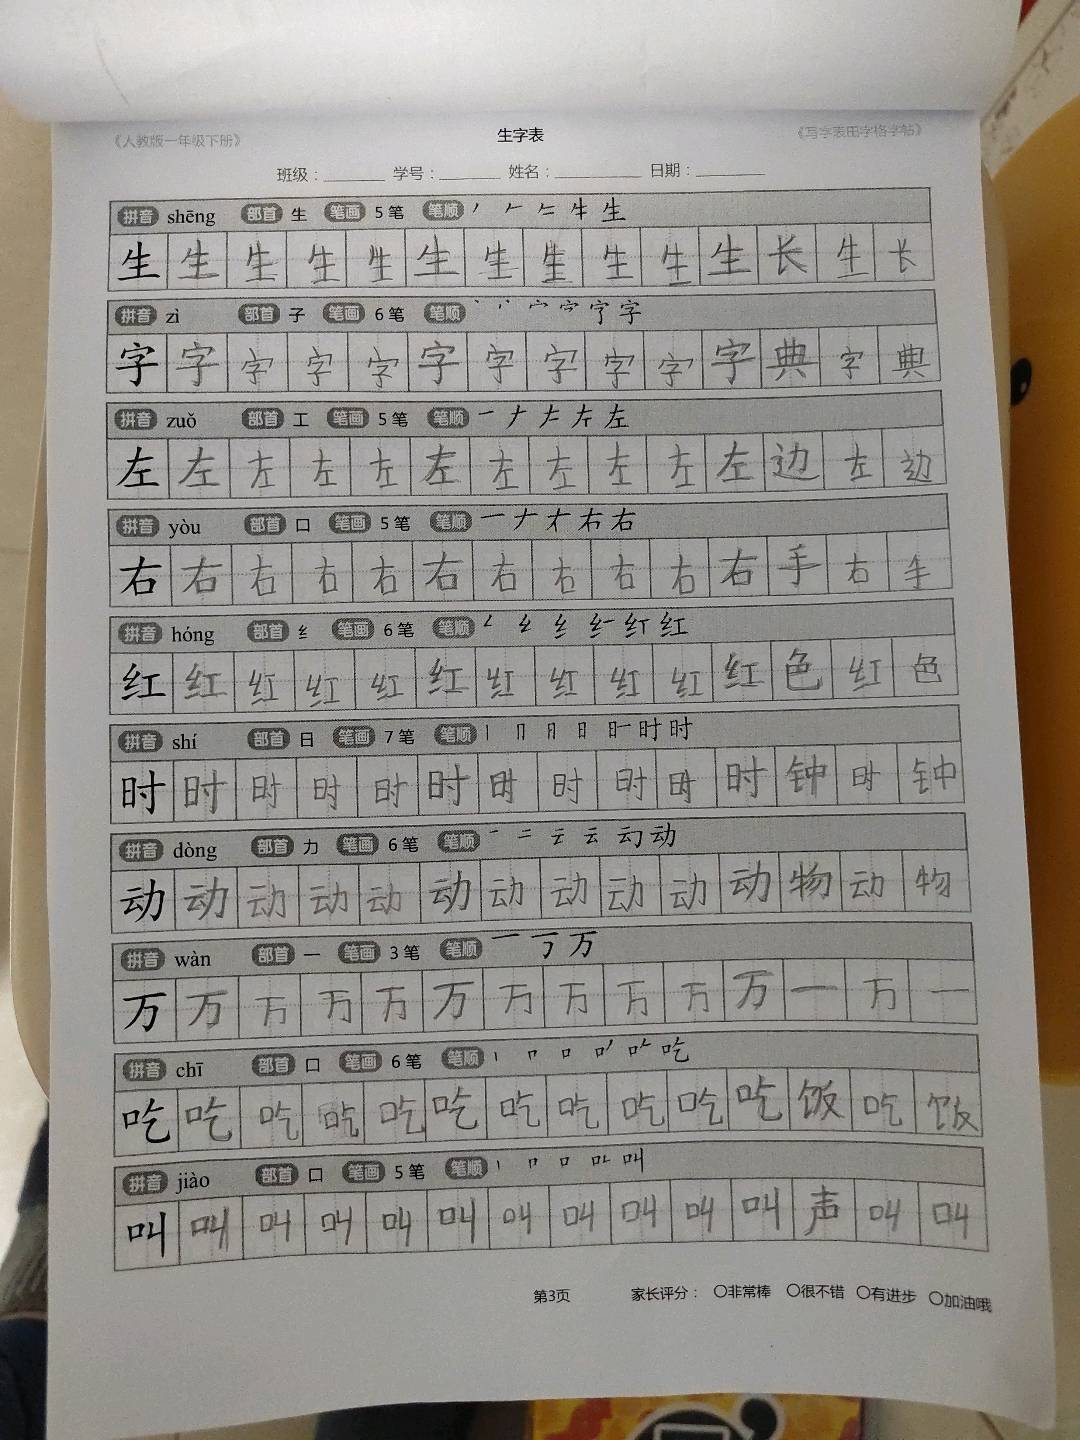 《人教版一年级下册》 生字表 《写字表田字格字帖》
班级：______ 学号：______ 姓名：______ 日期：______
拼音 shēng 部首 生 笔画 5 笔 笔顺 丿 𠂉 牛 生
生 生 生 生 生 生 生 生 生 生 生 长 生 长
拼音 zì 部首 子 笔画 6 笔 笔顺 丶 宀 字
字 字 字 字 字 字 字 字 字 字 字 典 字 典
拼音 zuǒ 部首 工 笔画 5 笔 笔顺 一 𠂇 左
左 左 左 左 左 左 左 左 左 左 左 边 左 边
拼音 yòu 部首 口 笔画 5 笔 笔顺 一 𠂇 右
右 右 右 右 右 右 右 右 右 右 右 手 右 手
拼音 hóng 部首 纟 笔画 6 笔 笔顺 纟 红
红 红 红 红 红 红 红 红 红 红 红 色 红 色
拼音 shí 部首 日 笔画 7 笔 笔顺 丨 冂 日 时
时 时 时 时 时 时 时 时 时 时 时 钟 时 钟
拼音 dòng 部首 力 笔画 6 笔 笔顺 一 二 云 动
动 动 动 动 动 动 动 动 动 动 动 物 动 物
拼音 wàn 部首 一 笔画 3 笔 笔顺 一 丆 万
万 万 万 万 万 万 万 万 万 万 万 一 万 一
拼音 chī 部首 口 笔画 6 笔 笔顺 丨 口 吃
吃 吃 吃 吃 吃 吃 吃 吃 吃 吃 吃 饭 吃 饭
拼音 jiào 部首 口 笔画 5 笔 笔顺 丨 口 叫
叫 叫 叫 叫 叫 叫 叫 叫 叫 叫 叫 声 叫 叫
第3页 家长评分： ○非常棒 ○很不错 ○有进步 ○加油哦